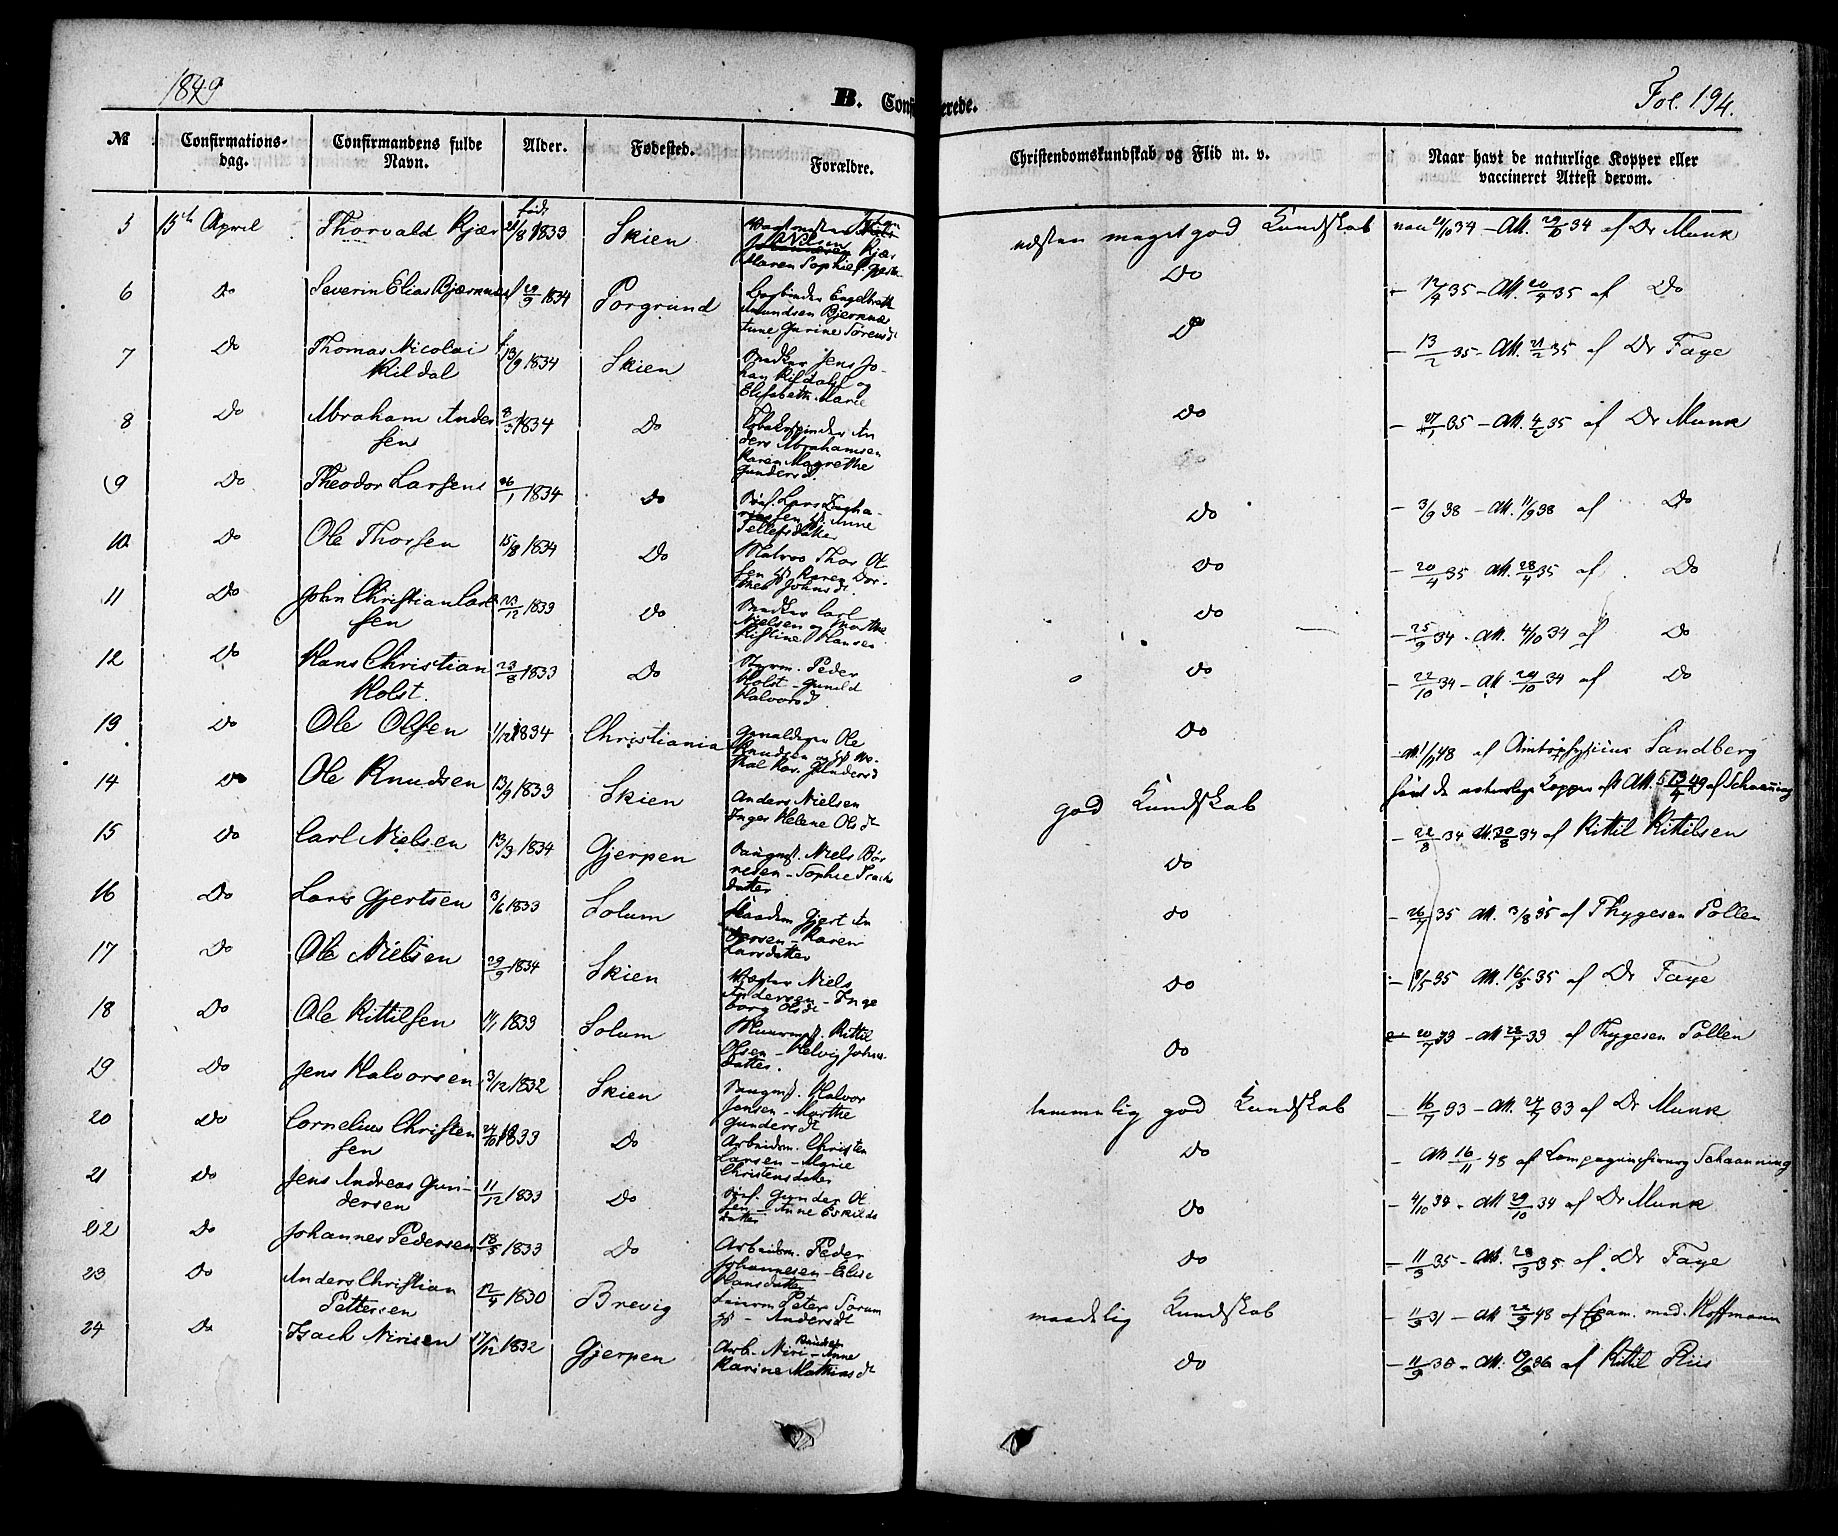 1849
B. Confirmerede.
Fol. 194.
№ Confirmations-dag. Confirmandens fulde Navn. Alder. Fødested. Forældre. Christendomskundskab og Flid m. v. Naar havt de naturlige Kopper eller vaccineret Attest derom.
5 15de April Thorvald Kjær fød. 1833 Skien Kjær Maren Sophie næsten meget god Kundskab 34 - Att. 34 af Dr Munk
6 Do Severin Elias 29/9 1834 Porgrund Engelbrekt Amundsen Gurine Sørensd Do 12/9 35 - Att. 20/9 35 af Do
7 Do Thomas Nicolai Kildal 13/9 1834 Skien Jens Johan Kildahl og Elisabeth Marie Do 13/2 35 - Att. 21/2 35 af Dr Faye
8 Do Abraham Andersen 8/3 1834 Do Tobakspinder Anders Abrahamsen Karen Magrethe Gundersd. Do 35 - Att. 35 af Dr Munk
9 Do Theodor Larsen 26/1 1834 Do Lars Anne Tellefsdatter Do 3/9 38 - Att. 11/9 38 af Do
10 Do Ole Thorsen 15/8 1834 Do Matros Thor Olsen Karen Dorthea Johnsd. Do 20/4 35 Att. 28/4 35 af Do
11 Do John Christian Carlsen 1833 Do Carl Nielsen og Marthe Kistine Hansen Do 25/9 34 - Att. 4/10 34 af Do
12 Do Hans Christian Holst 23/8 1833 Do Styrm. Peder Holst - Gunild Halvorsd. Do 22/10 34 - Att. 29/10 34 af Do
13 Do Ole Olsen 1/12 1834 Christiania Ole Knudsen Kar. Gundersd Do Att. 48 af Amtsphysicus Sandberg
14 Do Ole Knudsen 13/9 1833 Skien Anders Nielsen Inger Helene Olsdt god Kundskab de naturlige Kopper Att. 13/4 49 af Schaanning
15 Do Carl Nielsen 13/3 1834 Gjerpen Niels Sophie datter Do 22/8 34 Att. 30/8 34 af Kittil Kittilsen
16 Do Lars Gjertsen 3/6 1833 Solum Gjert Andersen - Karen Larsdatter Do 26/7 35 Att. 3/8 35 af Thygesen Pollen
17 Do Ole Nielsen 29/9 1834 Skien Niels Andersen - Ingeborg Olsdt Do 35 Att. 16/5 35 af Dr Faye
18 Do Ole Kittilsen 1833 Solum Kittil Olsen - Helvig Johnsdatter. Do 20/7 33 - Att 28/7 33 af Thygesen Pollen
19 Do Jens Halvorsen 3/12 1832 Skien Halvor Jensen - Marthe Gundersdt temmelig god Kundskab 16/7 33 - Att. 24/7 33 af Dr Munk
20 Do Cornelius Christensen 24/10 1833 Do Arbeidsm. Christen Larsen - Marie Christensdatter Do Att 16/11 48 af Compagnichirurg Schaanning
21 Do Jens Andreas Gundersen 11/12 1833 Do Gunder Olsen - Anne Eskildsdatter Do 4/10 34 - Att. 29/10 34 af Dr Munk
22 Do Johannes Pedersen 18/5 1833 Do Arbeidsm. Peder Johannesen - Elise Hansdatter Do 11/3 35 - Att. 28/3 35 af Dr Faye
23 Do Anders Christian Pettersen 12/4 1830 Brevig Peter Andersdt maadelig Kundskab 11/9 31 - Att 48 af Exam. med. Hoffmann
24 Do Isach Nirisen 17/12 1832 Gjerpen Arb. Niri Anne Karine Mathiasdt Do 11/9 36 - Att. 36 af Kittil Riis